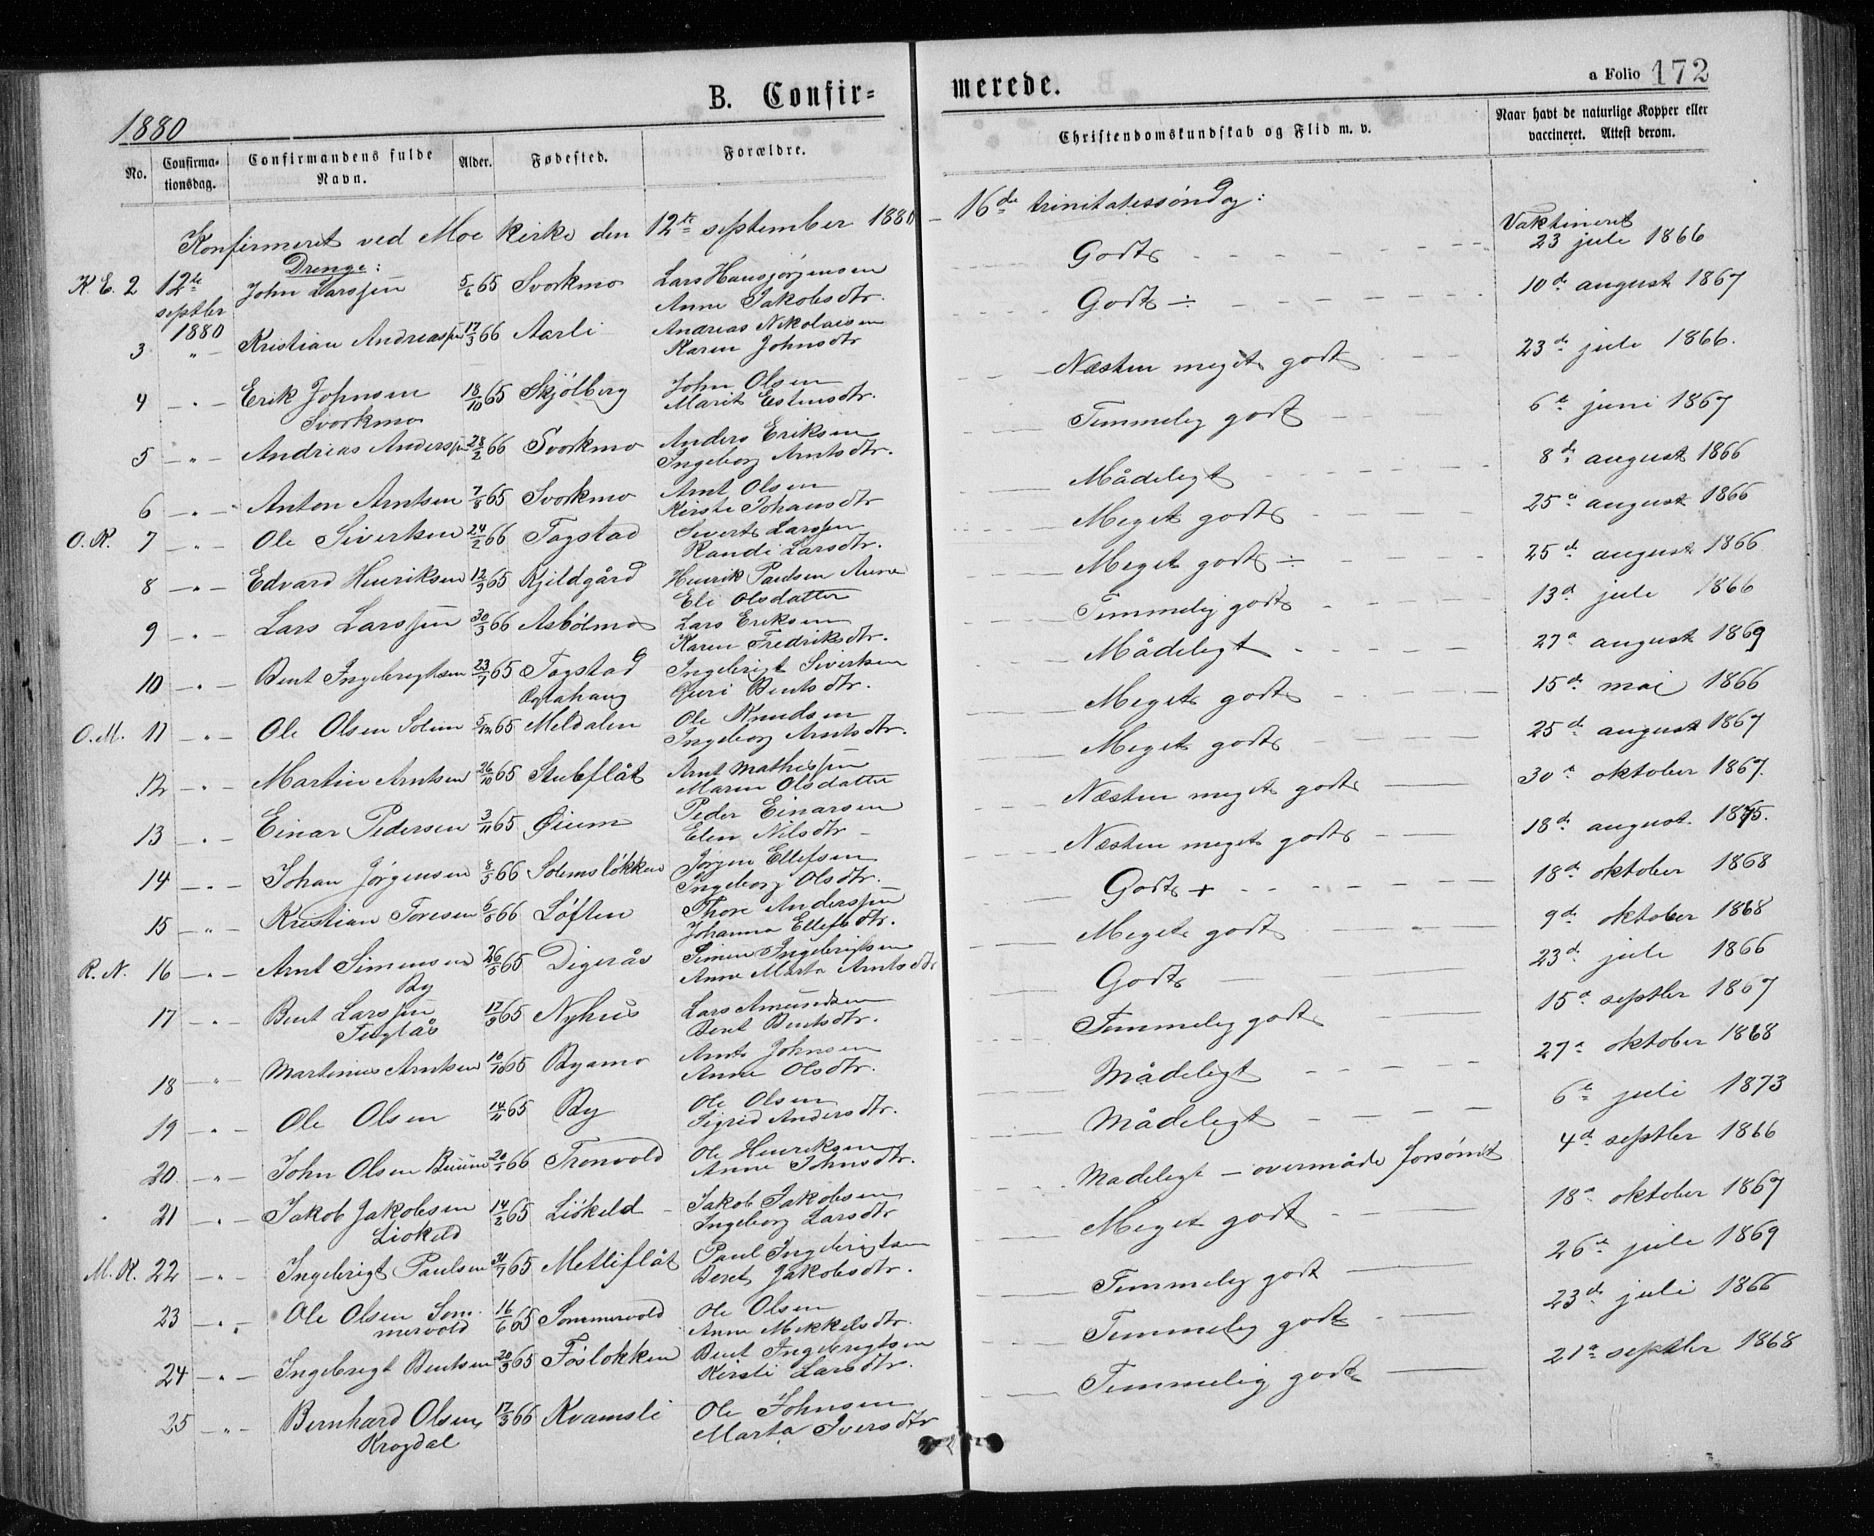 B. Confir=
merede.
a Folio 172
1880
No.
Confirma-
tionsdag.
Confirmandens fulde
Navn.
Alder.
Fødested.
Forældre.
Christendomskundskab og Flid m. v.
Naar havt de naturlige Kopper eller
vaccineret. Attest derom.
Konfirmeret ved Moe kirke den 12te september 1880 – 16de trinitatessøndag:
Drenge:
Vaktineret
K. E. 2 12te John Larssen 5/6 65 Svorkmo Lars Hansjørgensen Godt 23 juli 1866
septbr Anne Jakobsdtr.
1880
3 – " – Kristian Andreassen 17/3 66 Aarli Andreas Nikolaisen Godt ÷ 10de august 1867
Karen Johnsdtr
4 – " – Erik Johnsen 18/10 65 Skjølberg John Olsen Næsten meget godt 23de juli 1866.
Svorkmo Marit Estensdtr.
5 – " – Andreas Anderssen 28/2 66 Svorkmo Anders Eriksen Temmelig godt 6te juni 1867
Ingeborg Arntsdtr.
6 – " – Anton Arntsen 65 Svorkmo Arnt Olsen Mådeligt 8de august 1866
Kirsti Johansdtr
O. R. 7 – " – Ole Sivertsen 24/2 66 Fagstad Sivert Larssen Meget godt 25de august 1866
Randi Larsdtr.
8 – " – Edvard Henriksen 12/3 65 Kjildgård Henrik Paulsen Aune Meget godt ÷ 25de august 1866
Eli Olsdatter
9 – " – Lars Larssen 30/3 66 Asbølmo Lars Eriksen Temmelig godt 13de juli 1866
Karen Fredriksdtr.
10 – " – Bent Ingebrigtsen 23/7 65 Fagstad Ingebrigt Sivertsen Mådeligt 27de august 1869
Guri Bentsdtr.
O. M. 11 – " – Ole Olsen Solem 65 Meldalen Ole Knudsen Meget godt 15de mai 1866
Ingeborg Arntsdtr.
12 – " – Martin Arntsen 26/10 65 Stubflåt Arnt Mathissen Meget godt 25de august 1867
Maren Olsdatter
13 – " – Einar Pedersen 3/11 65 Øium Peder Einarsen Næsten meget godt 30te oktober 1867.
Elen Nilsdtr –
14 – " – Johan Jørgensen 8/5 66 Solemsløkken Jørgen Ellefsen Næsten meget godt 18de august 1875.
Ingeborg Olsdtr.
15 – " – Kristian Toresen 66 Løften Thore Anderssen Godt + 18de oktober 1868
Johanna Ellefsdtr.
R. N. 16 – " – Arnt Simensen 26/5 65 Digerås Simen Ingebrigtsen Meget godt 9de oktober 1868
By Anne Marta Arntsdtr
17 – " – Bent Larssen 17/9 65 Nyhus Lars Amundsen Godt 23de juli 1866
Beret Bentsdtr.
18 – " – Martinus Arntsen 10/10 65 Byamo Arnt Johnsen Temmelig godt 15de septbr 1867
Anne Olsdtr.
19 – " – Ole Olsen 14/11 65 By Ole Olsen Mådeligt 27de oktober 1868
Sigrid Andersdtr.
20 – " – John Olsen 66 Tronvold Ole Henriksen Mådeligt 6te juli 1873
Anne Johnsdtr.
21 – " – Jakob Jakobsen 14/2 65 Liskeld Jakob Jakobsen Mådeligt – overmåde forsømt 4de septbr 1866
Liskeld Ingeborg Larsdtr
M. K. 22 – " – Ingebrigt Paulsen 65 Metliflåt Paul Ingebrigtsen Meget godt 18de oktober 1867
Beret Jakobsdtr.
23 – " – Ole Olsen Som- 16/6 65 Sommervold Ole Olsen Temmelig godt 26de juli 1869
mervold Anne Mikkelsdtr.
24 – " – Ingebrigt Bentsen 20/3 65 Føsløkken Bent Ingebrigtsen Temmelig godt 23de juli 1866
Kirsti Larsdtr.
25 – " – Bernhard Olsen 17/3 66 Kvamsli Ole Johnsen Temmelig godt 21de septbr 1868
Krogdal Marta Iversdtr